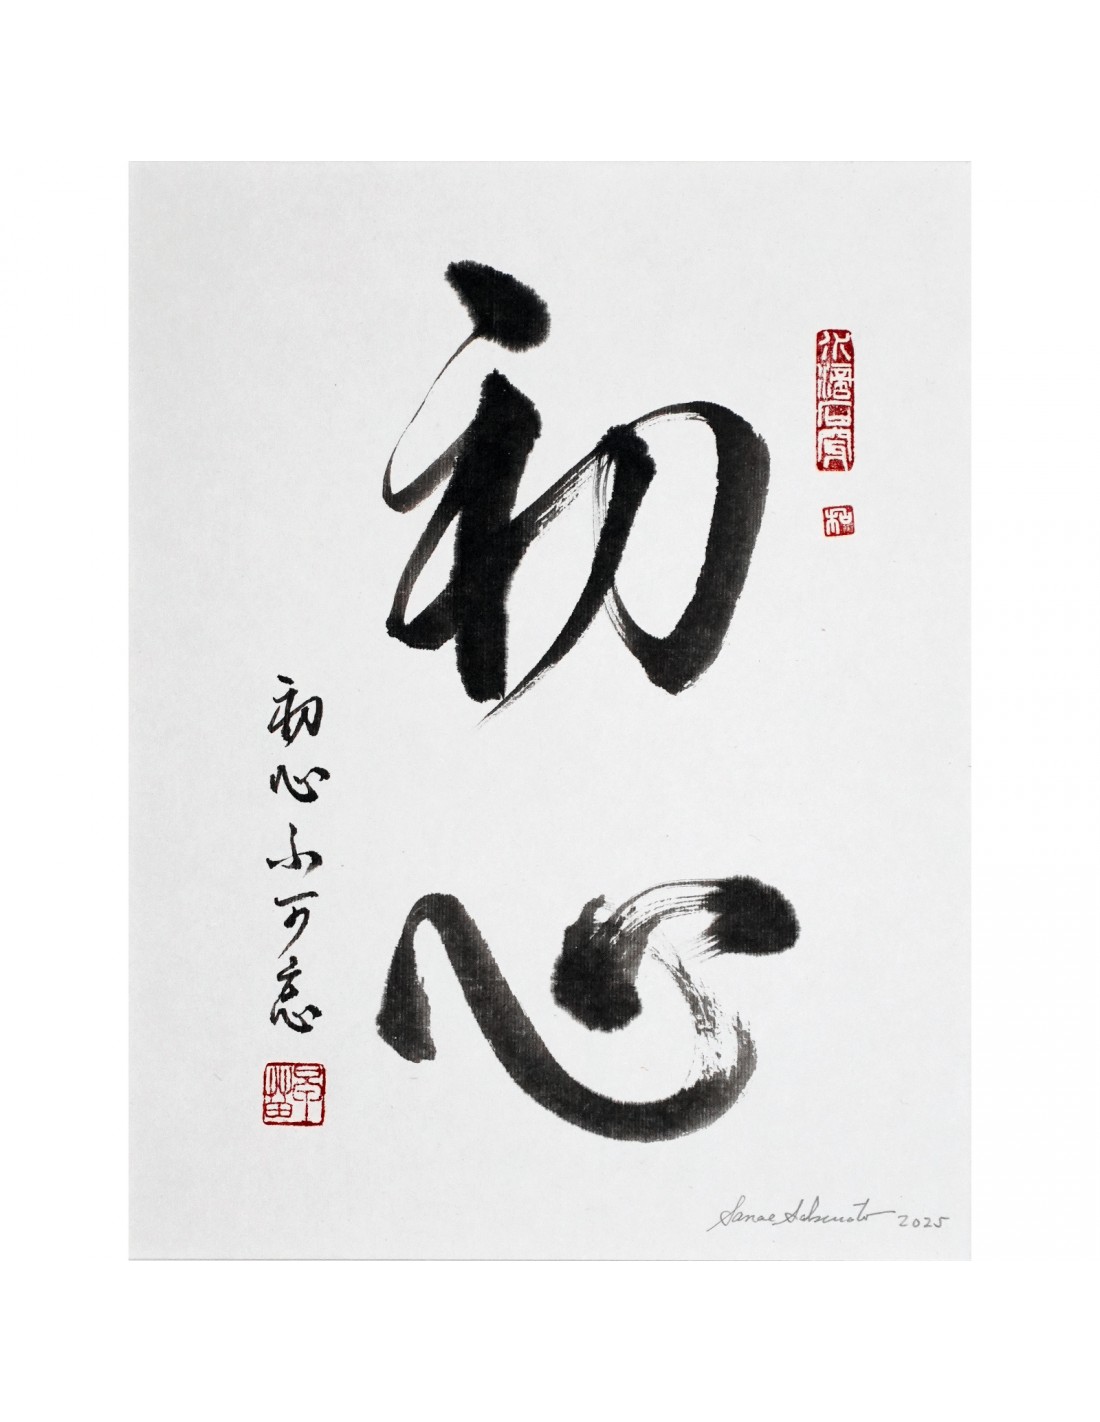 初心
初心不可忘
和
Sanae Sakamoto 2025